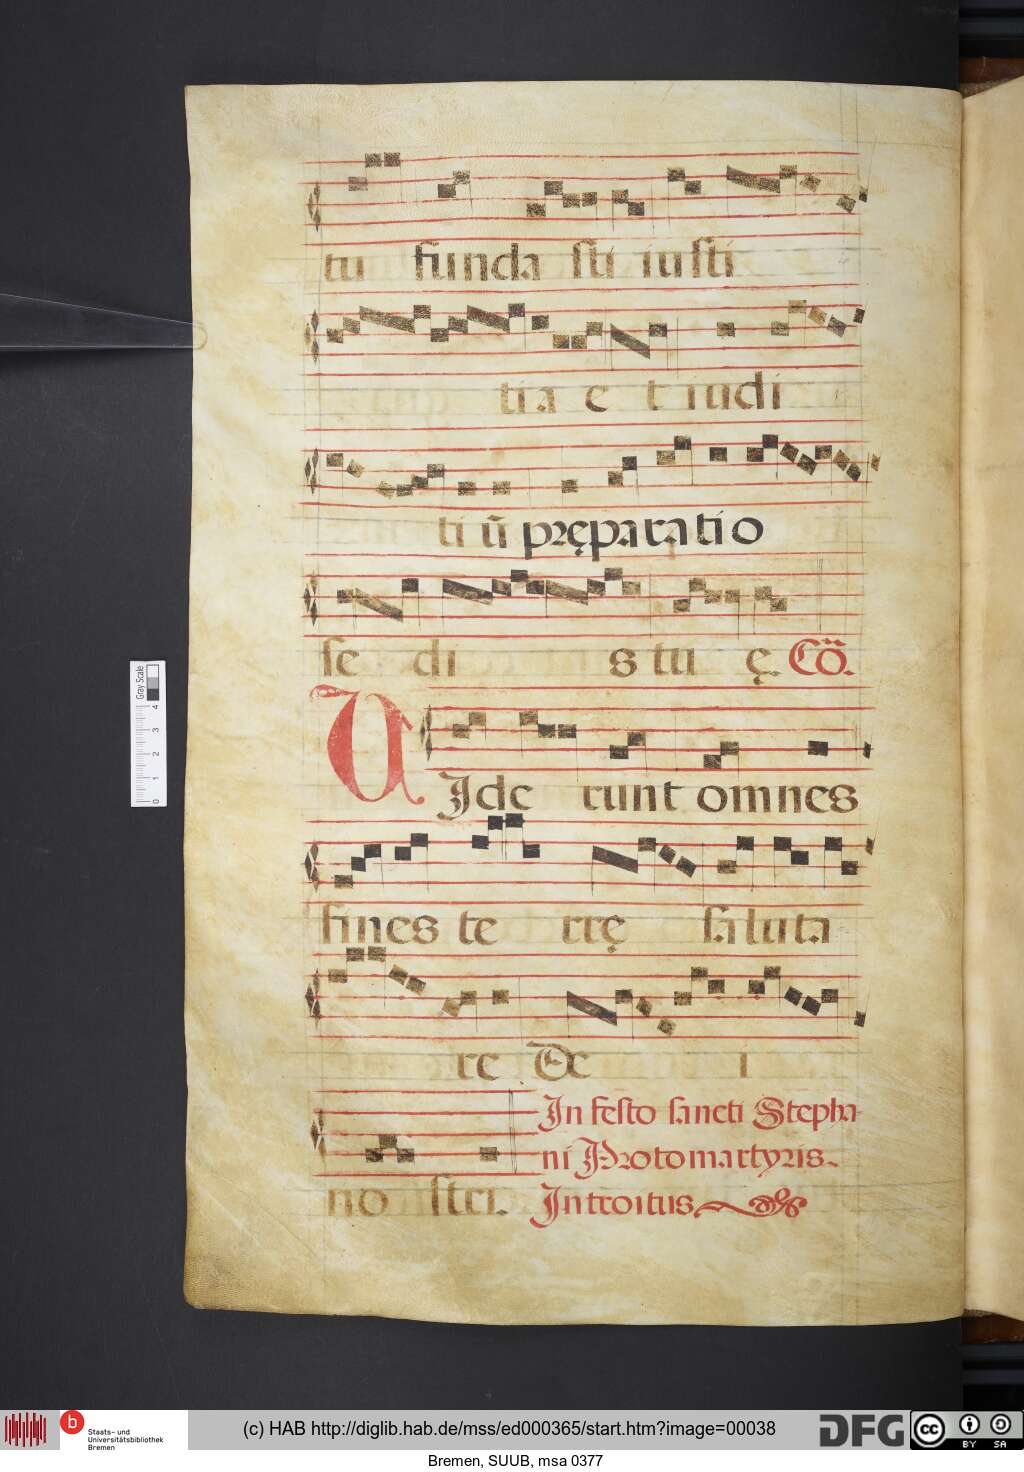 tu funda sti iusti
tia e t iudi
ti ū pręparatio
se di s tu ę. Cō.
VIde runt omnes
fines te rrę saluta
re De i
no stri. In festo sancti Stepha
ni Protomartyris.
Introitus
Gray Scale
0 1 2 3 4
b
Staats- und
Universitätsbibliothek
Bremen
(c) HAB http://diglib.hab.de/mss/ed000365/start.htm?image=00038
DFG
cc BY SA
Bremen, SUUB, msa 0377